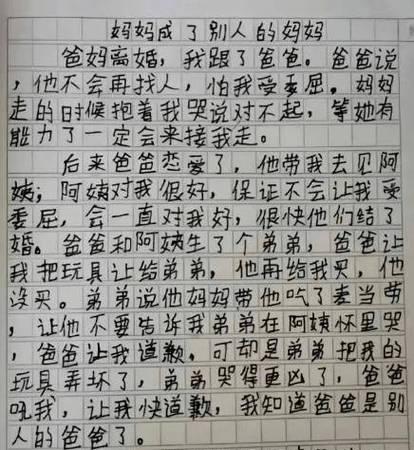 妈妈成了别人的妈妈
爸妈离婚，我跟了爸爸。爸爸说
，他不会再找人，怕我受委屈。妈妈
走的时候抱着我哭说对不起，等她有
能力了一定会来接我走。
后来爸爸恋爱了，他带我去见阿
姨；阿姨对我很好，保证不会让我受
委屈，会一直对我好，很快他们结了
婚。爸爸和阿姨生了个弟弟，爸爸让
我把玩具让给弟弟，他再给我买，他
没买。弟弟说他妈妈带他吃了麦当劳
，让他不要告诉我弟弟在阿姨怀里哭
，爸爸让我道歉。可却是弟弟把我的
玩具弄坏了，弟弟哭得更凶了，爸爸
吼我，让我快道歉，我知道爸爸是别
人的爸爸了。